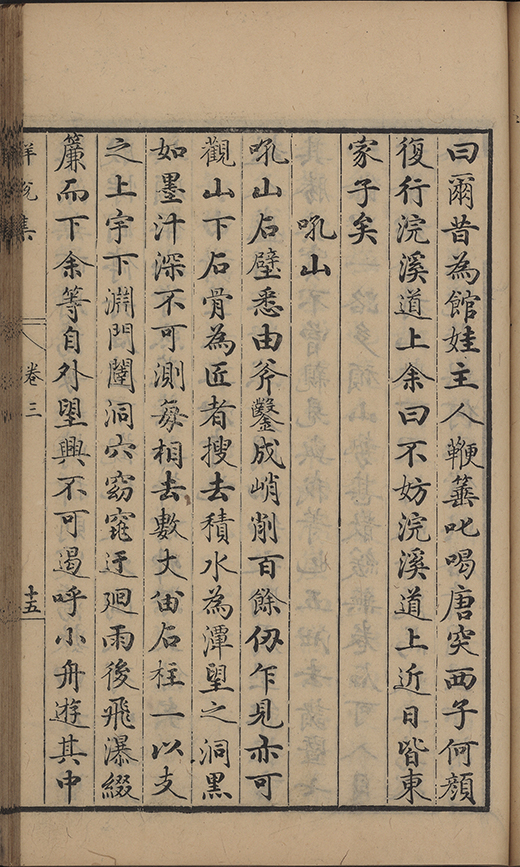 曰爾昔為館娃主人鞭箠叱喝唐突西子何顏
復行浣溪道上余曰不妨浣溪道上近日皆東
家子矣
吼山
吼山石壁悉由斧鑿成峭削百餘仞乍見亦可
觀山下石骨為匠者搜去積水為潭望之洞黑
如墨汁深不可測每相去數丈留石柱一以支
之上宇下淵門闥洞穴窈窕迂廻雨後飛瀑綴
簾而下余等自外望興不可遏呼小舟遊其中
卷三
十五